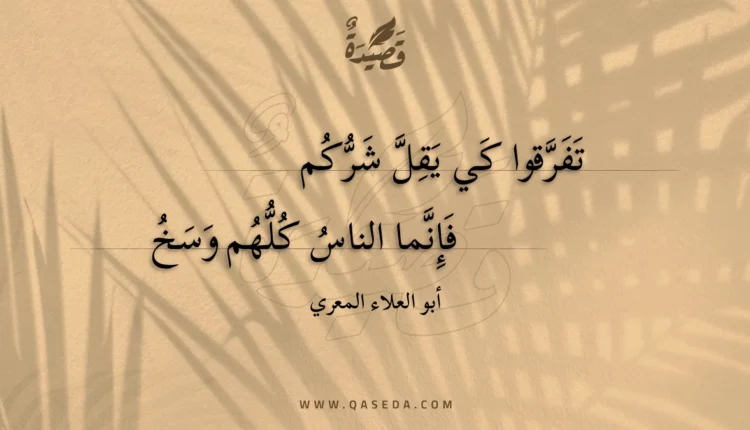 قَصِيْدَةٌ
تَفَرَّقوا كَي يَقِلَّ شَرُّكُم
فَإِنَّما الناسُ كُلُّهُم وَسَخُ
أبو العلاء المعري
WWW.QASEDA.COM